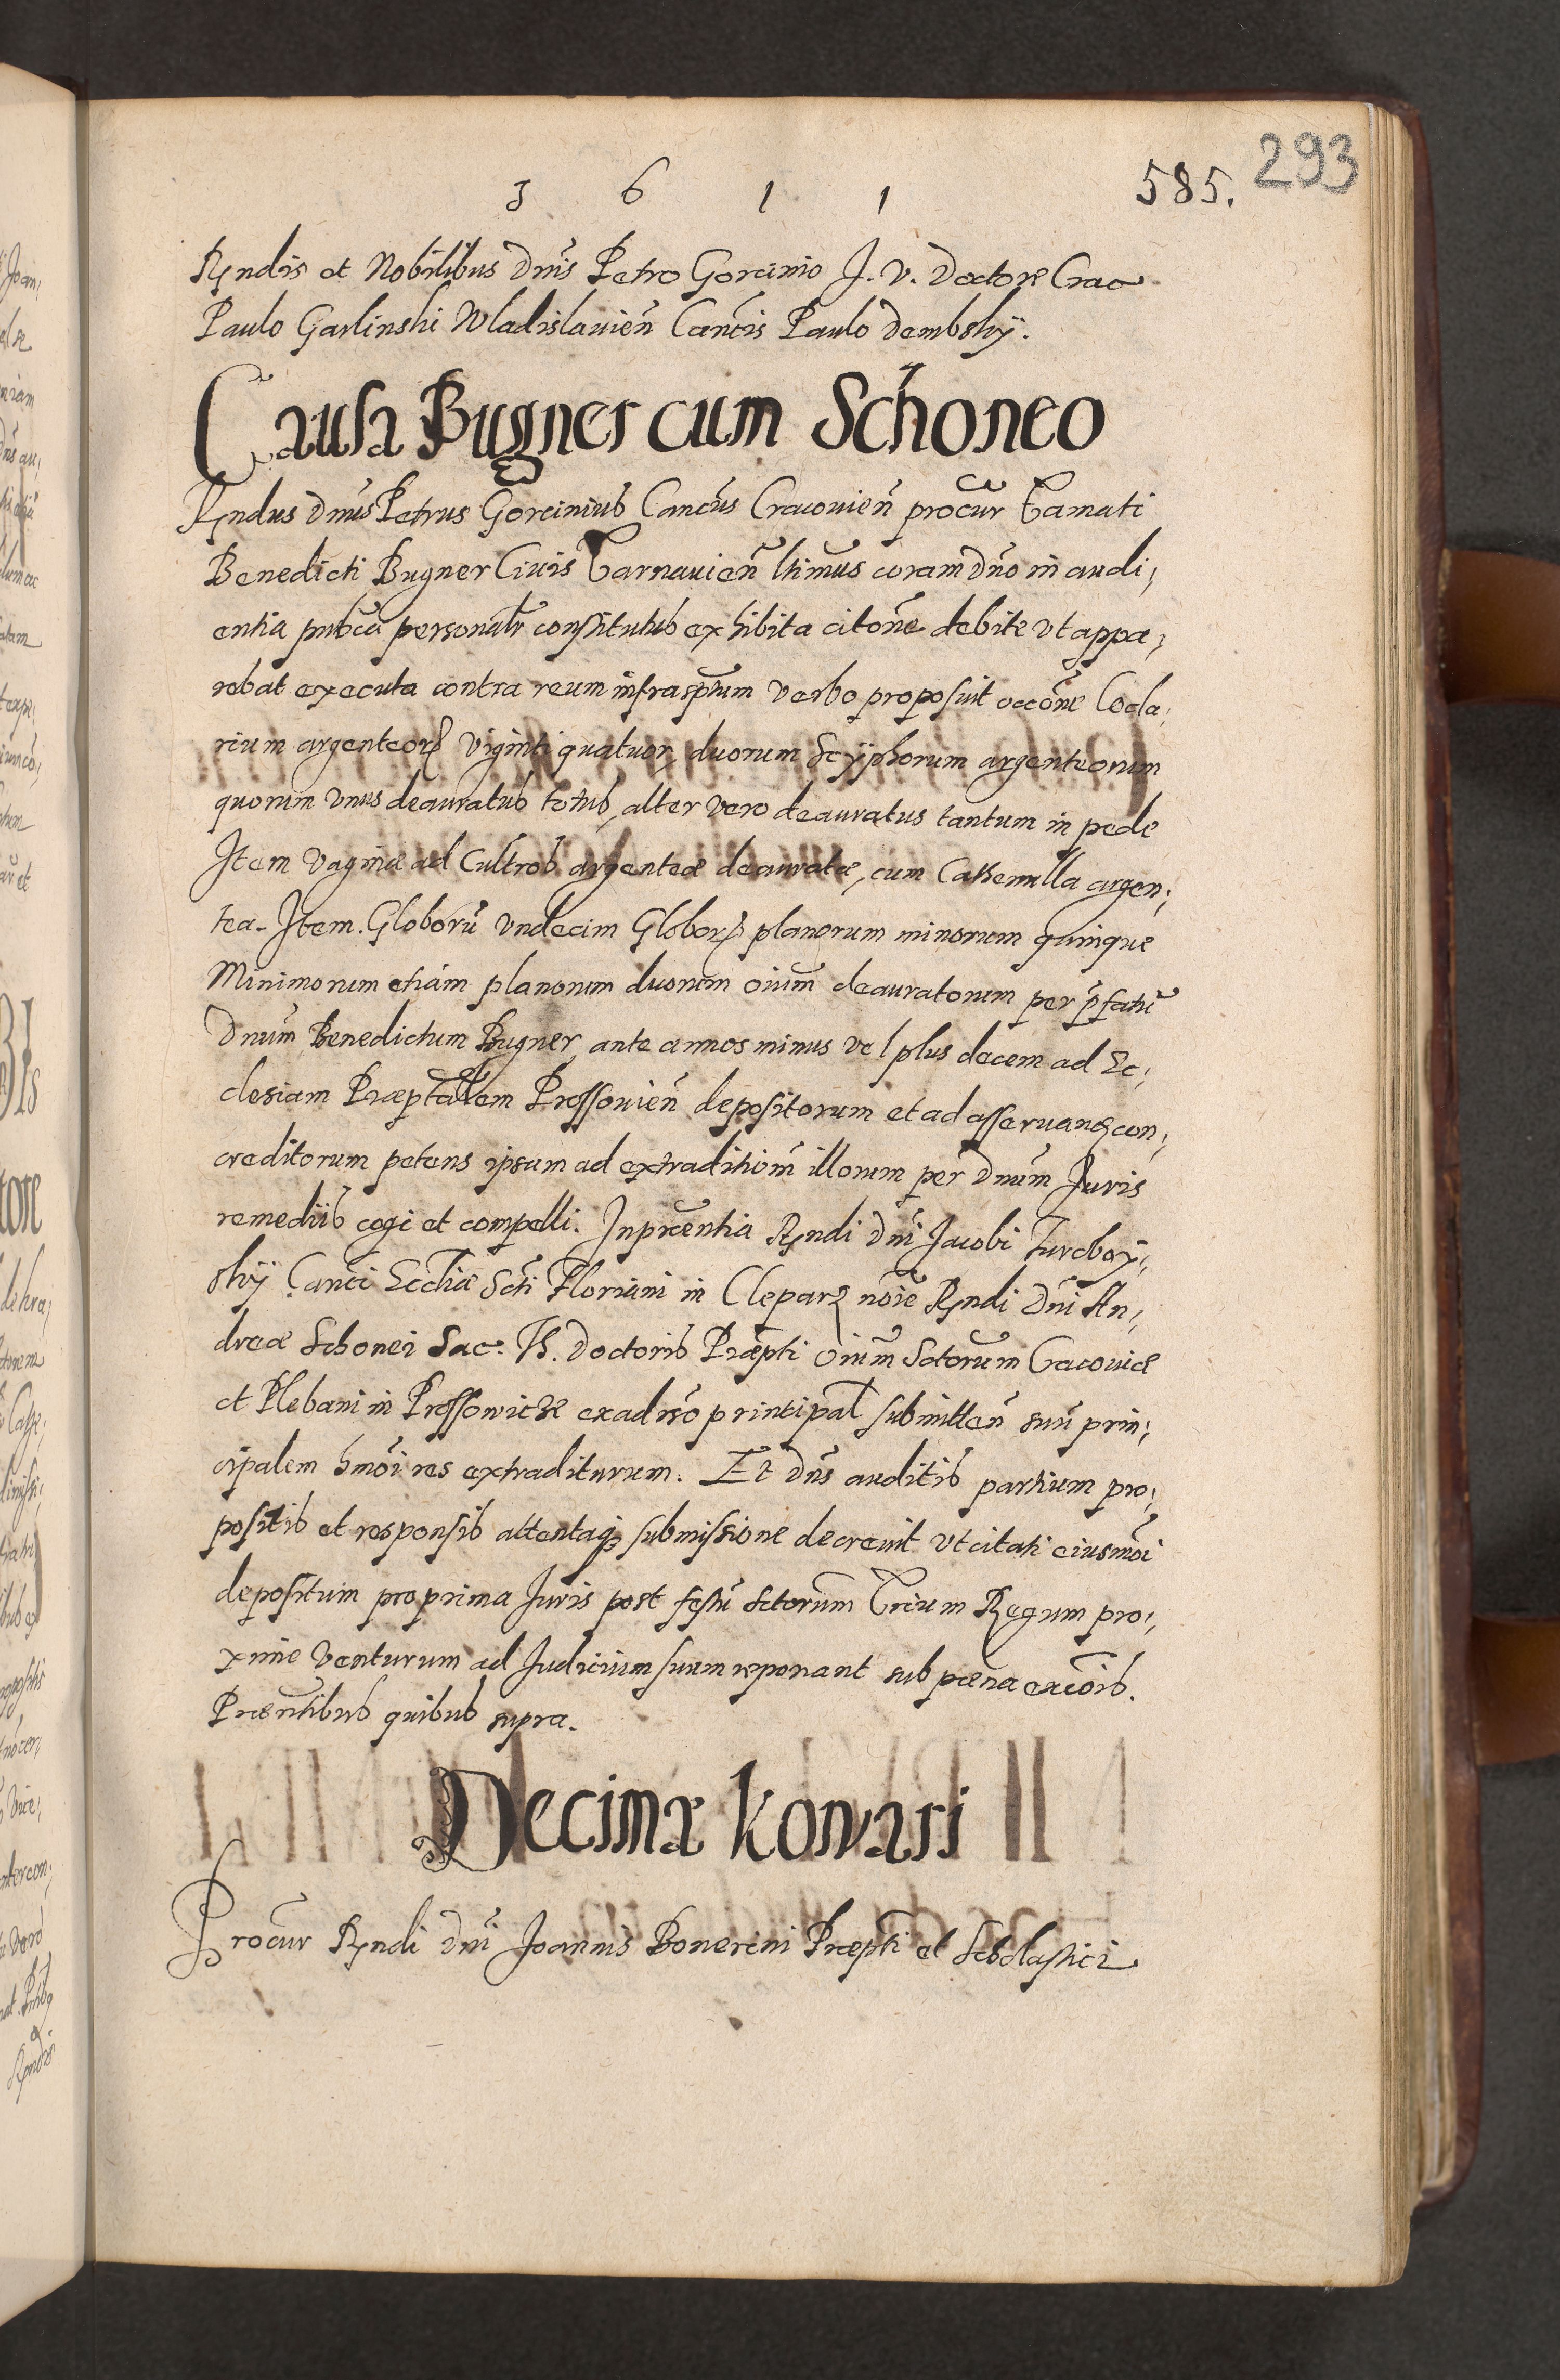 1 6 1 1
585. 293
Rñdis et Nobilibus Dnis Petro Gorcinio J. V. Doctore Crac
Paulo Garlinski Wladislauień Cancis Paulo Dembsky.
Causa Bugner cum Schoneo
Rñdus Dnus Petrus Gorcinius Cancus Cracouień procur Famati
Benedicti Bugner Ciuis Tarnauień ltimus coram Dno in audi,
entia pubca personalr constitutus exhibita citone debite vt appa,
rebat executa contra reum infrasptum verbo proposuit occone Coclea,
rium argenteorȝ viginti quatuor, duorum Scÿphorum argenteorum
quorum vnus deauratus totus, alter vero deauratus tantum in pede
Item vaginæ ad Cultros argenteæ deauratæ, cum Cathenulla argen,
tea. Item. Globorũ vndecim Globorȝ planorum minorum quinque
Minimorum etiam planorum duorum oium deauratorum per pfatũ
Dnum Benedictum Bugner, ante annos minus vel plus decem ad Ec,
clesiam Præptalem Prossouień depositorum et ad asseruanȝ con,
creditorum petens ipsum ad extraditiom illorum per Dnum Juris
remediis cogi et compelli. In præntia Rñdi Dni Jacobi Turoboÿ,
skÿ Canci Ecclіæ Scti Floriani in Clepar noie Rñdi Dni An,
dreæ Schonei Sac. Th. Doctoris Præpti Oium Sctorum Cracouiæ
et Plebani in Prossowicze ex aduso principal submitteñ suũ prin,
cipalem hmoi res extraditurum. Et Dns auditis partium pro,
positis et responsis attentaqȝ submissione decreuit vt citati eiusmoi
depositum pro prima Juris post festũ Sctorum Trium Regum pro,
xime venturum ad Judicium suum reponant sub pæna excois.
Præntibus quibus supra.
Decimæ Kowari
Procur Rñdi Dni Joannis Bonerini Præpti et Scholastici